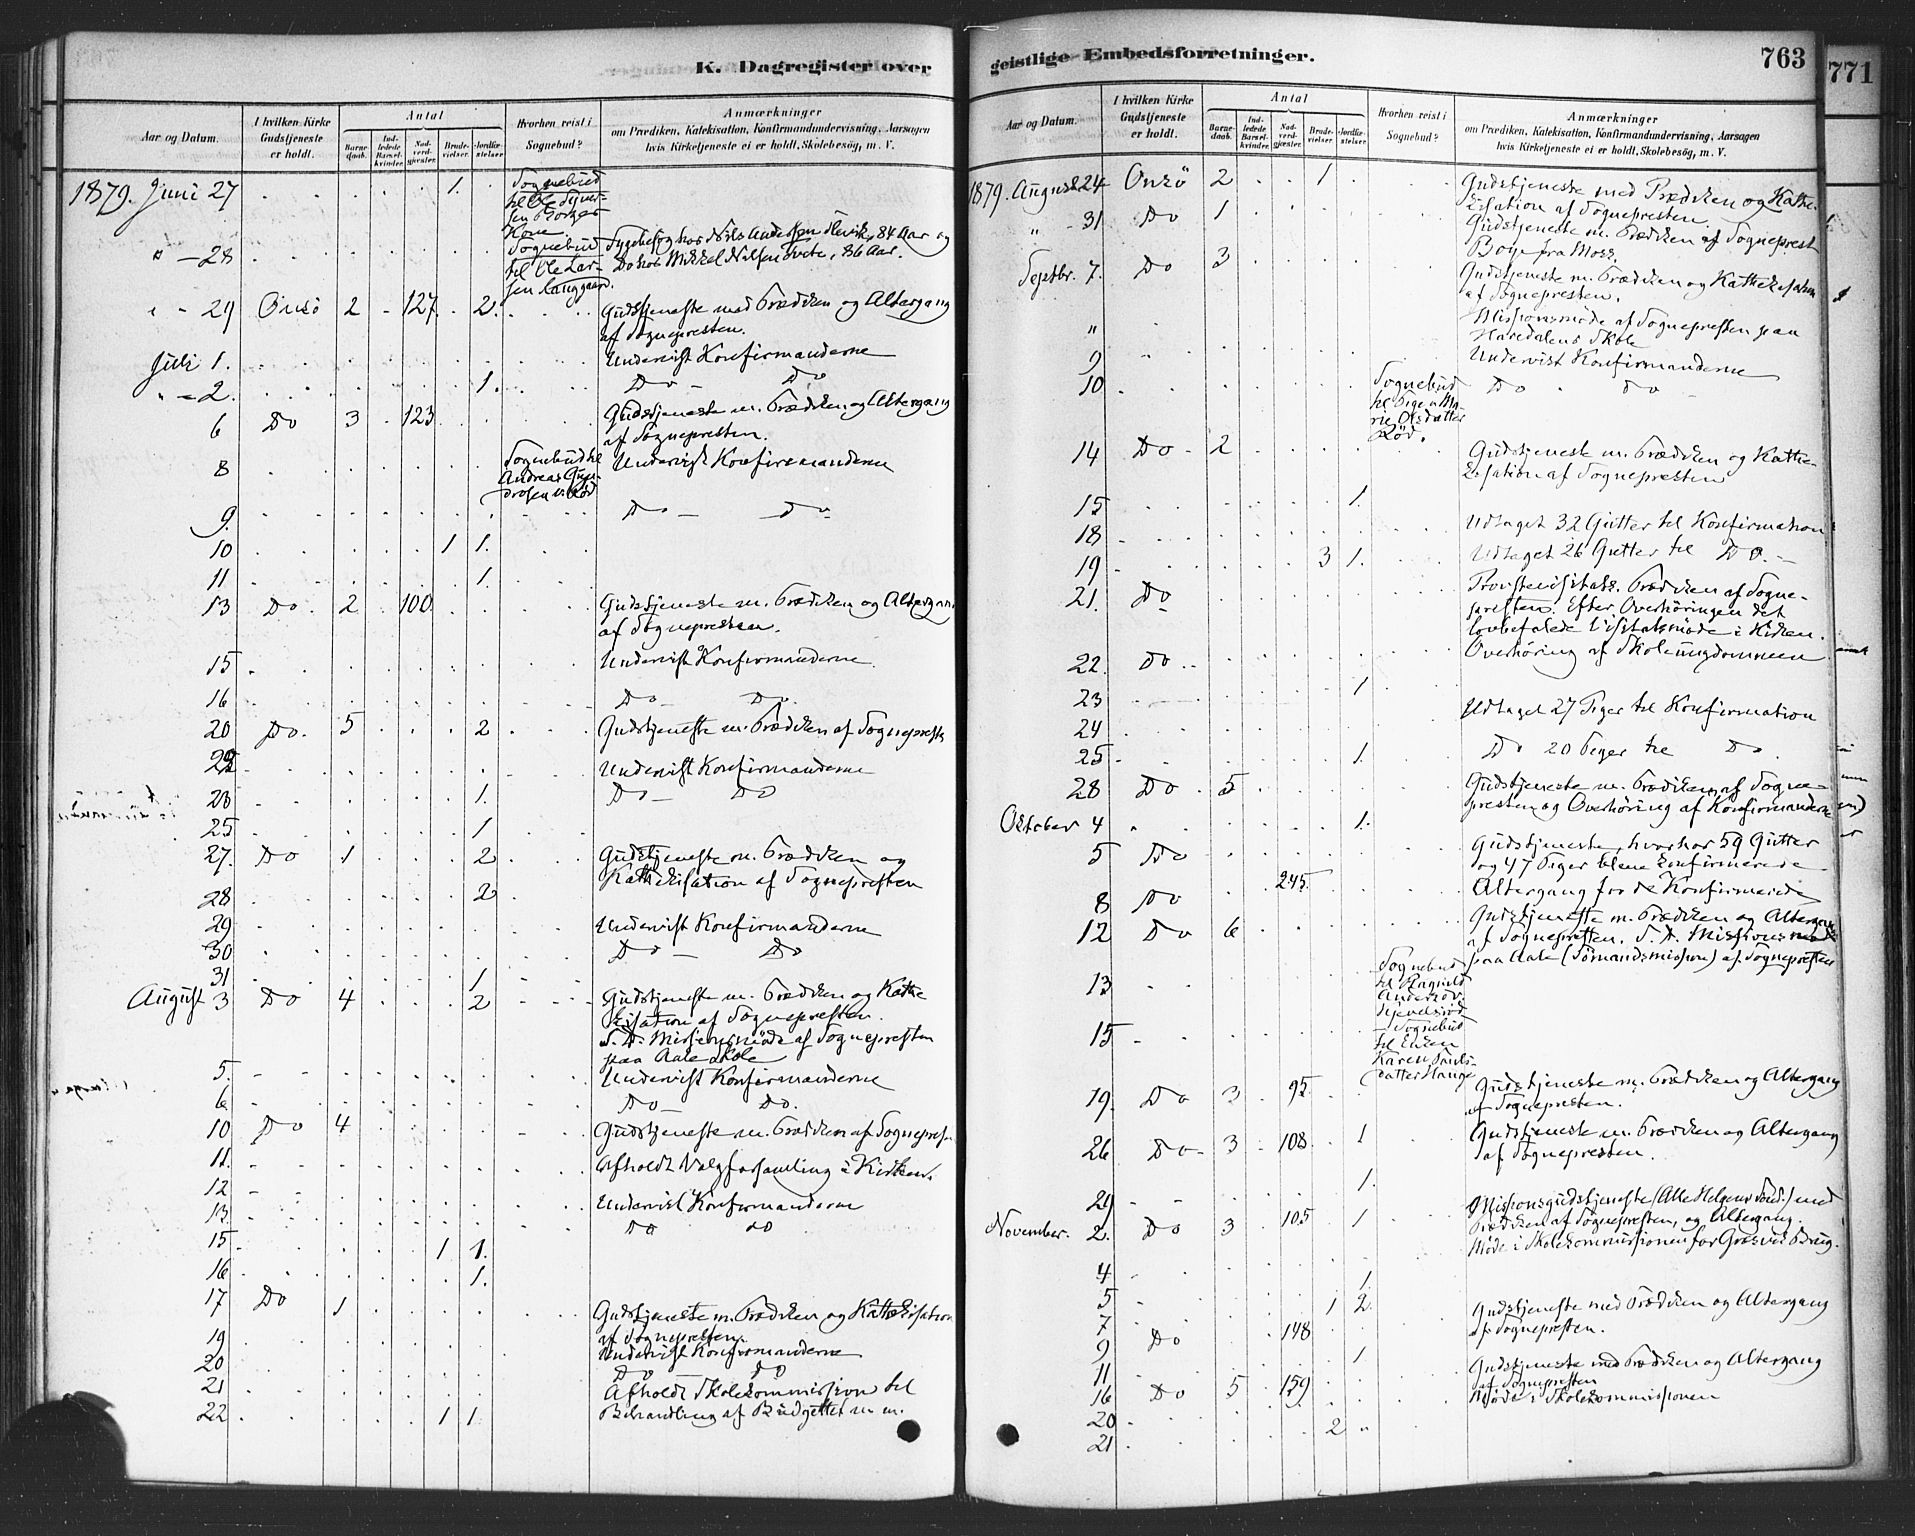 K. Dagregister over
Aar og Datum.
I hvilken Kirke Gudstjeneste er holdt.
Antal
Barnedaab.
Indledede Barselkvinder.
Nadverdgjæster.
Brudevielser.
Jordfæstelser.
Hvorhen reist i Sognebud?
Anmærkninger
om Prædiken, Katekisation, Konfirmandundervisning, Aarsagen
hvis Kirketjeneste ei er holdt, Skolebesøg, m. V.
1879. Juni 27 1. Sognebud
til Ole
Kone.
" - 28 Sognebud Sygebesøg hos Nils Andersen 84 Aar og
til Ole Lar- Do hos Mikkel Nilsen 86 Aar.
sen
" - 29 Onsö 2 127 2. Gudstjeneste med Prædiken og Altergang
af Sognepresten.
Juli 1. Undervist Konfirmanderne
" - 2. 1. Do - Do
6 Do 3 123 Gudstjeneste m. Prædiken og Altergang
af Sognepresten.
8 Sognebud til Undervist Konfirmanderne
Andreas
9. Do - Do
10 1 1.
11 1.
13 Do. 2 100. Gudstjeneste m. Prædiken og Altergang
af Sognepresten.
15 Undervist Konfirmanderne
16 Do - Do.
20 Do. 5 2 Gudstjeneste m. Prædiken af Sognepresten
22 Undervist Konfirmanderne
23 1. Do - Do
25 1.
27. Do 1 2 Gudstjeneste m. Prædiken og
Kathekisation af Sognepresten
28 2
29 Undervist Konfirmanderne
30 Do - Do
31 1
August 3 Do 4 2 Gudstjeneste m. Prædiken og Kathe
kisation af Sognepresten.
S. D. Missionsmöde af Sognepresten
paa Aale Skole
5. Undervist Konfirmanderne
6 Do - Do.
10 Do 4 Gudstjeneste m. Prædiken af Sognepres
11. Afholdt Valgforsamling i Kirken.
12 Undervist Konfirmanderne
13. Do Do
15 1 1.
16 1.
17 Do 1 Gudstjeneste m. Prædiken og Kathekisation
af Sognepresten.
19 Undervist Konfirmanderne
20 Do Do
21 Afholdt Skolekommission til
22 1 1. Behandling af Budgettet m. m.
geistlige Embedsforretninger.
763
771
Aar og Datum.
I hvilken Kirke Gudstjeneste er holdt.
Antal
Barnedaab.
Indledede Barselkvinder.
Nadverdgjæster.
Brudevielser.
Jordfæstelser.
Hvorhen reist i Sognebud?
Anmærkninger
om Prædiken, Katekisation, Konfirmandundervisning, Aarsagen
hvis Kirketjeneste ei er holdt, Skolebesøg, m. V.
1879. August 24 Onsö 2 1 Gudstjeneste med Prædiken og Kathe-
kisation af Sognepresten
" - 31 Do 1 Gudstjeneste m. Prædiken af Sogneprest
Boye fra Moss.
Septbr. 7. Do 3 Gudstjeneste m. Prædiken og Kathekisation
af Sognepresten.
" Missionsmöde af Sognepresten paa
Haredalens Skole
9 Undervist Konfirmanderne
10 Sognebud Do Do
til Pigen Ma-
rie Olsdatter
Röd.
14 Do 2 Gudstjeneste m. Prædiken og Kathe-
kisation af Sognepresten
15 1.
18 Udtaget 32 Gutter til Konfirmation
19 3 1. Udtaget 26 Gutter til Do.
21. Do Provstevisitats. Prædiken af Sogne-
presten. Efter Overhöringen det
lovbefalede Visitatsmöde i Kirken.
22. Do Overhöring af Skoleungdommen
23 1
24 Udtaget 27 Piger til Konfirmation
25 1. Do 20 Piger til Do
28 Do 5 Gudstjeneste m. Prædiken af Sogne-
presten og Overhöring af Konfirmanderne
Oktober 4 1.
5 Do Gudstjeneste, hvorhos 59 Gutter
og 47 Piger bleve konfirmerede
8 Do 245. Altergang for de Konfirmerede
12 Do 6 Gudstjeneste m. Prædiken og Altergang
af Sognepresten. S. D. Missionsmöde
paa Aale (Sömandsmission) af Sognepresten
13 Sognebud
til
15 Sognebud
til Enken
Karen
datter Hauge
19. Do 3 95. Gudstjeneste m. Prædiken og Altergang
af Sognepresten.
26 Do 3 108. 1 Gudstjeneste m. Prædiken og Altergang
af Sognepresten.
29 1.
November. 2. Do 3 105 1 Missionsgudstjeneste (Alle Helgens Sönd.) med
Prædiken af Sognepresten, og Altergang.
4 Möde i Skolekommissionen for Græsvik Brug.
5 1.
7 1 2.
9 Do 148 Gudstjeneste med Prædiken og Altergang
af Sognepresten.
11 1
16 Do 5 159 Gudstjeneste med Prædiken og Altergang
af Sognepresten
20 2 " Möde i Skolekommissionen
21